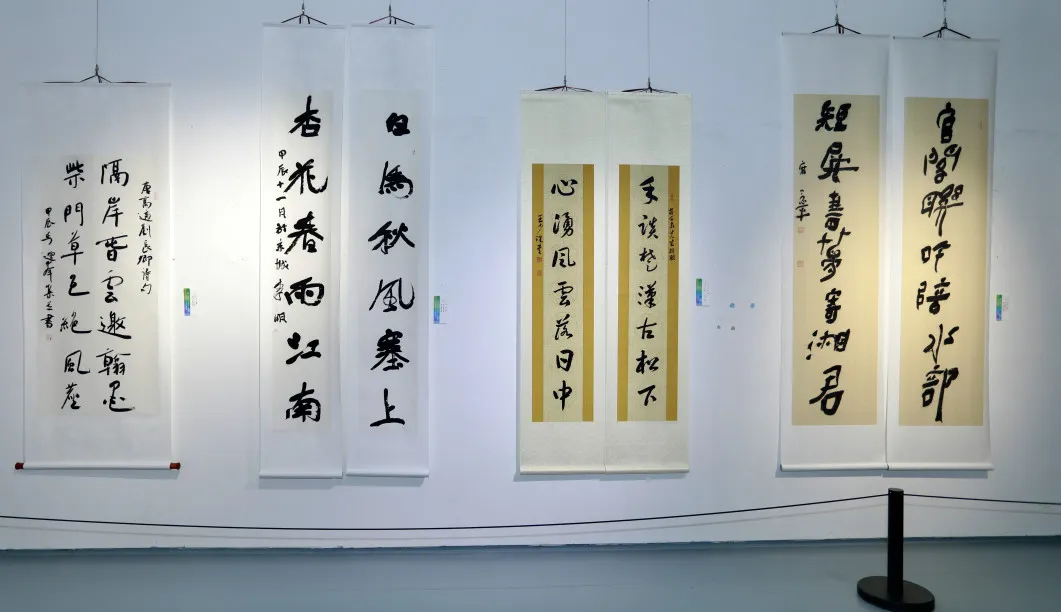 唐高適劉長卿詩句
隔岸春雲邀翰墨
柴門草色絕風塵
白馬秋風塞上
杏花春雨江南
甲辰十一月於京城
手談楚漢古松下
心湧風雲落日中
官閣聯吟陪水部
短屏書夢寄湘君